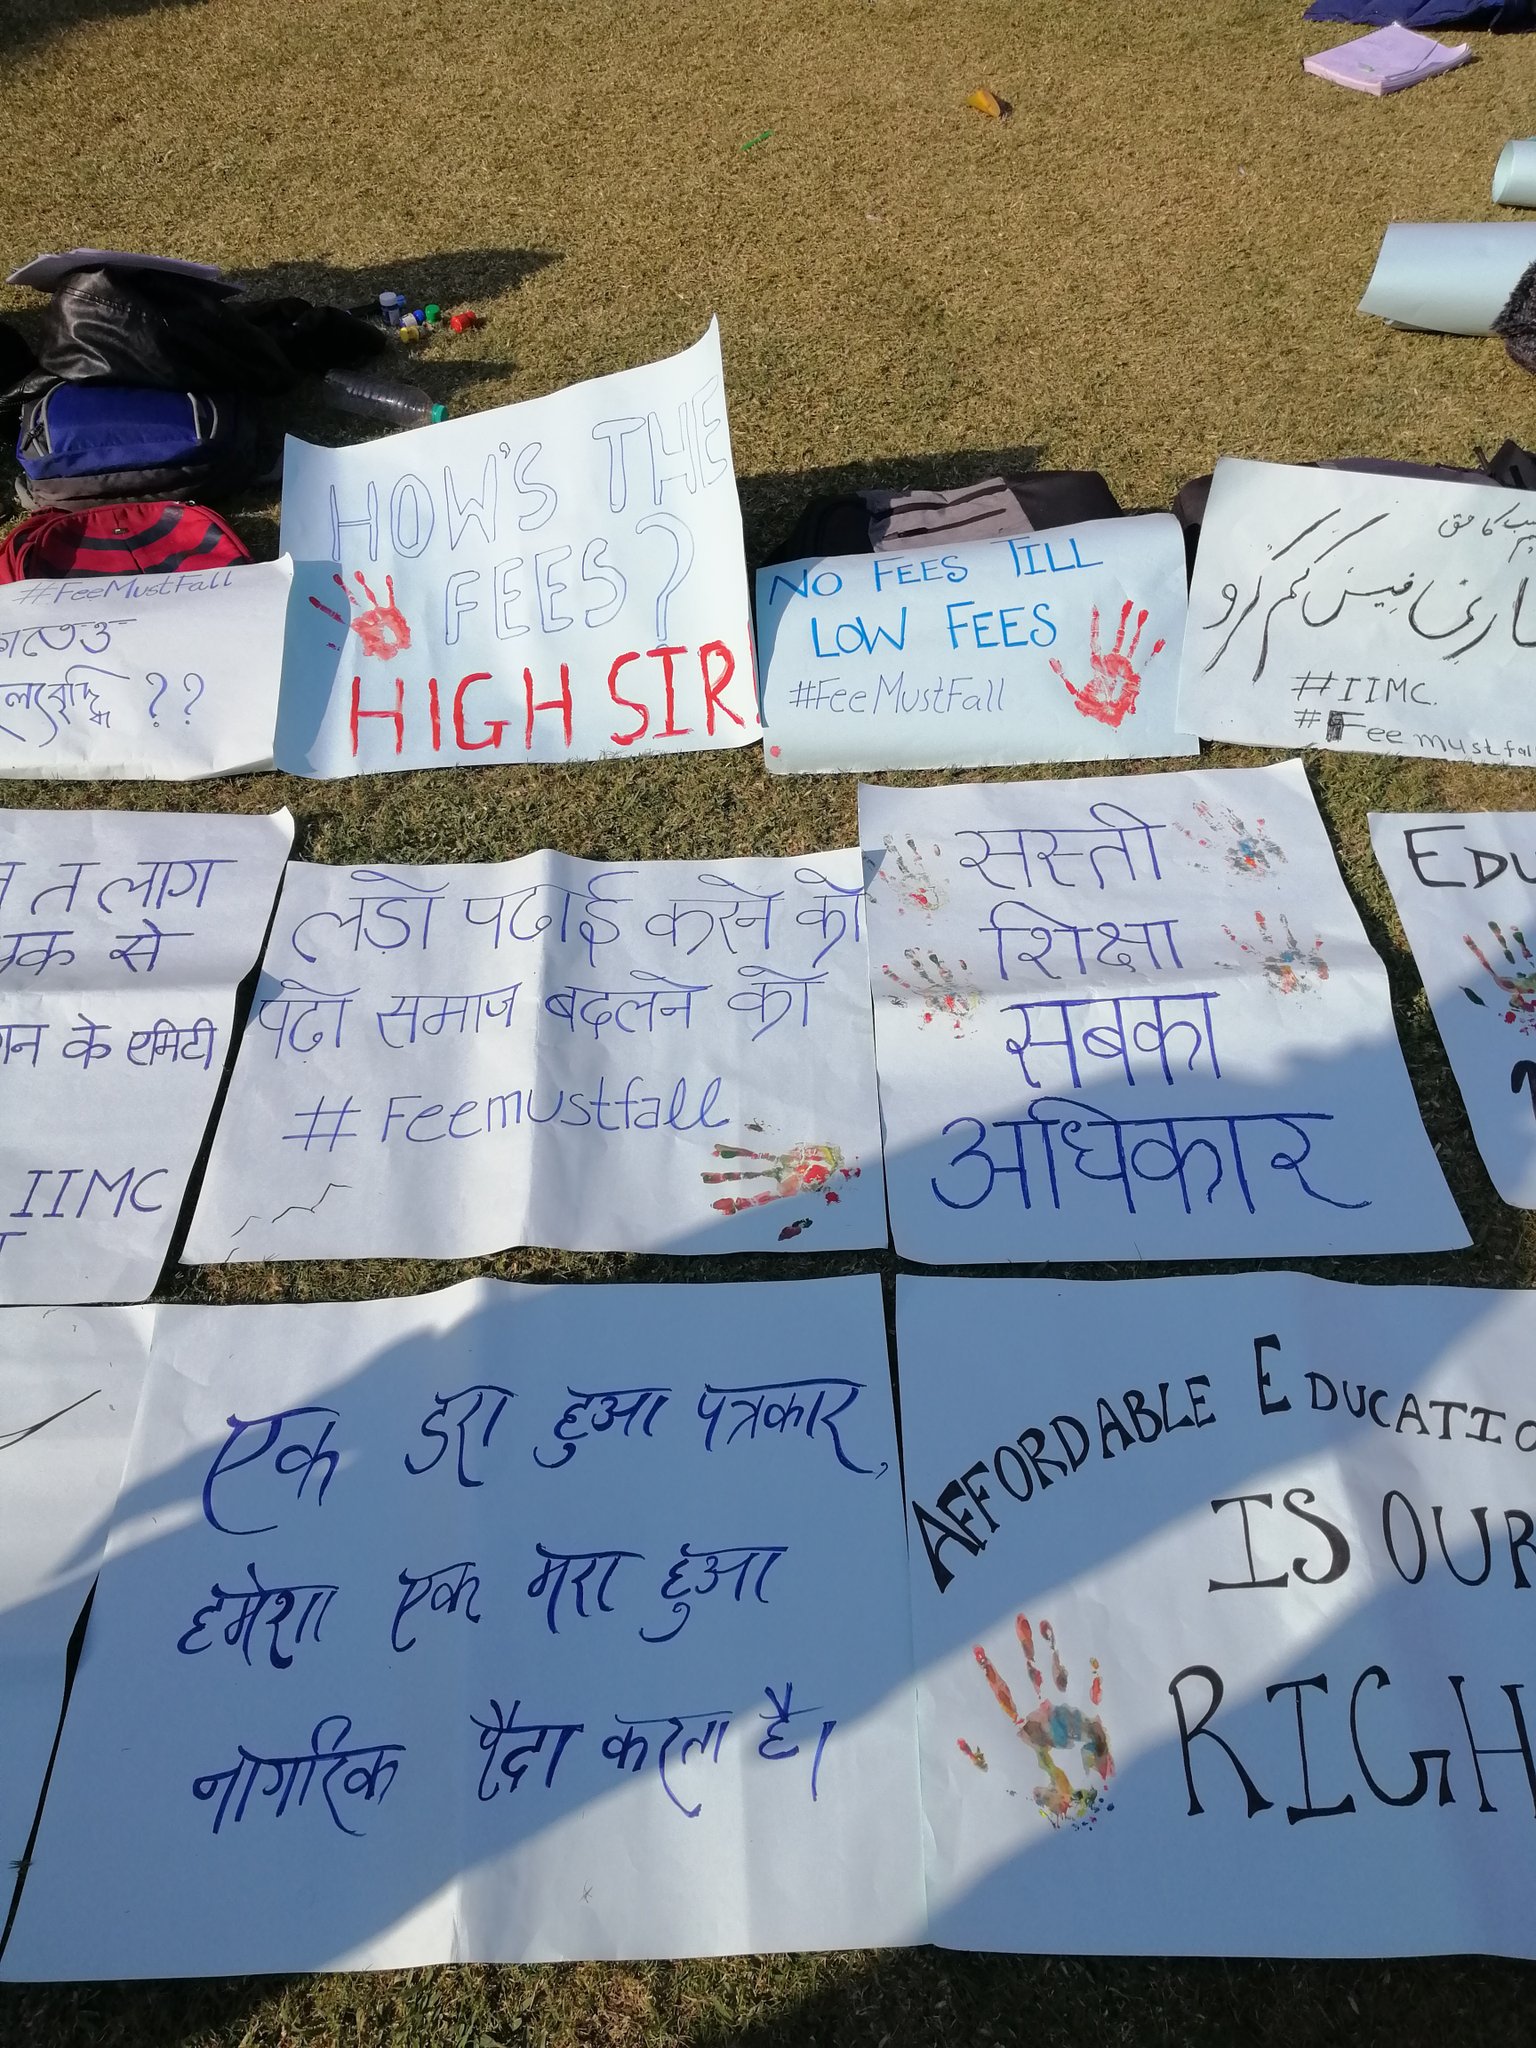 #FeeMustFall
??
HOW'S THE
FEES?
HIGH SIR!
NO FEES TILL
LOW FEES
#FeeMustFall
کا حق
فیس کم کرو
#IIMC.
#Feemustfal
त लाग
से
के एमिटी
IIMC
लड़ो पढाई करने को
पढो समाज बदलने को
#Feemustfall
सस्ती
शिक्षा
सबका
अधिकार
EDU
एक डरा हुआ पत्रकार,
हमेशा एक मरा हुआ
नागरिक पैदा करता है।
AFFORDABLE EDUCATIO
IS OUR
RIGH